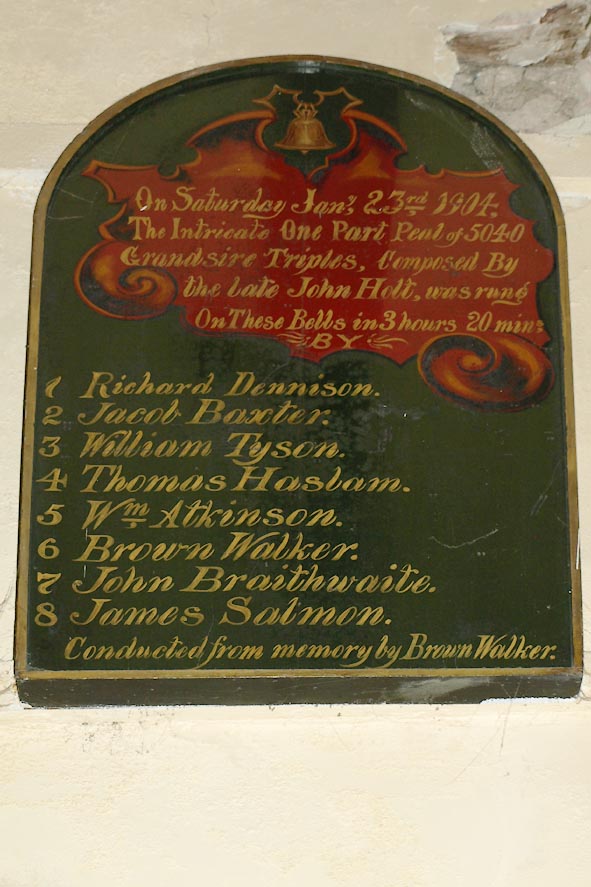 On Saturday Jany. 23rd 1904,
The Intricate One Part Peal of 5040
Grandsire Triples, Composed By
the late John Holt, was rung
On These Bells in 3 hours 20 mins
BY
1 Richard Dennison.
2 Jacob Baxter.
3 William Tyson.
4 Thomas Haslam.
5 Wm Atkinson.
6 Brown Walker.
7 John Braithwaite.
8 James Salmon.
Conducted from memory by Brown Walker.